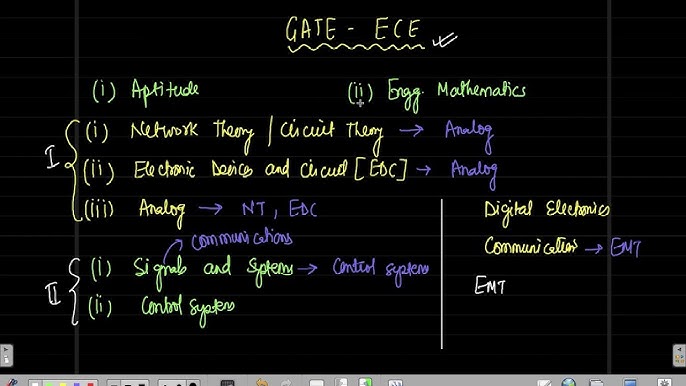 GATE - ECE
(i) Aptitude (ii) Engg. Mathematics
I
(i) Network Theory / Circuit Theory → Analog
(ii) Electronic Devices and Circuit [EDC] → Analog
(iii) Analog → NT, EDC
Communications
II
(i) Signals and Systems → Control Systems
(ii) Control Systems
Digital Electronics
Communication → EMT
EMT